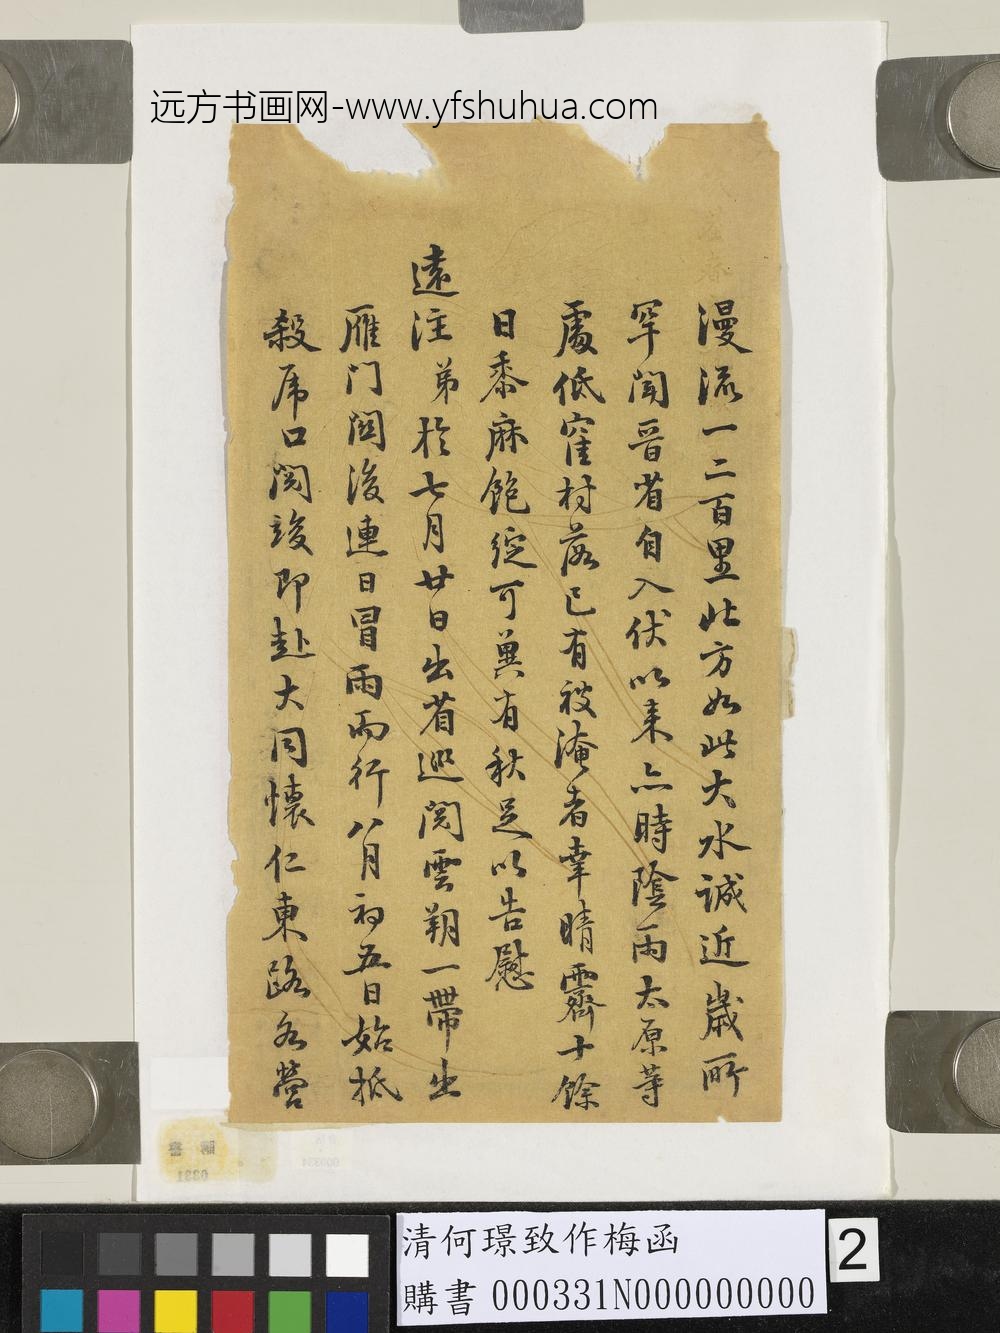 远方书画网-www.yfshuhua.com
漫流一二百里此方如此大水誠近歲所
罕聞晋省自入伏以来亦時陰雨太原等
處低窪村落已有被淹者幸晴霽十餘
日黍麻飽綻可兾有秋足以告慰
遠注弟於七月廿日出省巡閱雲朔一帶出
雁门関後連日冒雨而行八月初五日始抵
殺虎口閱竣即赴大同懷仁東路各營
購書
0331
清何璟致作梅函
購書 000331N000000000
2